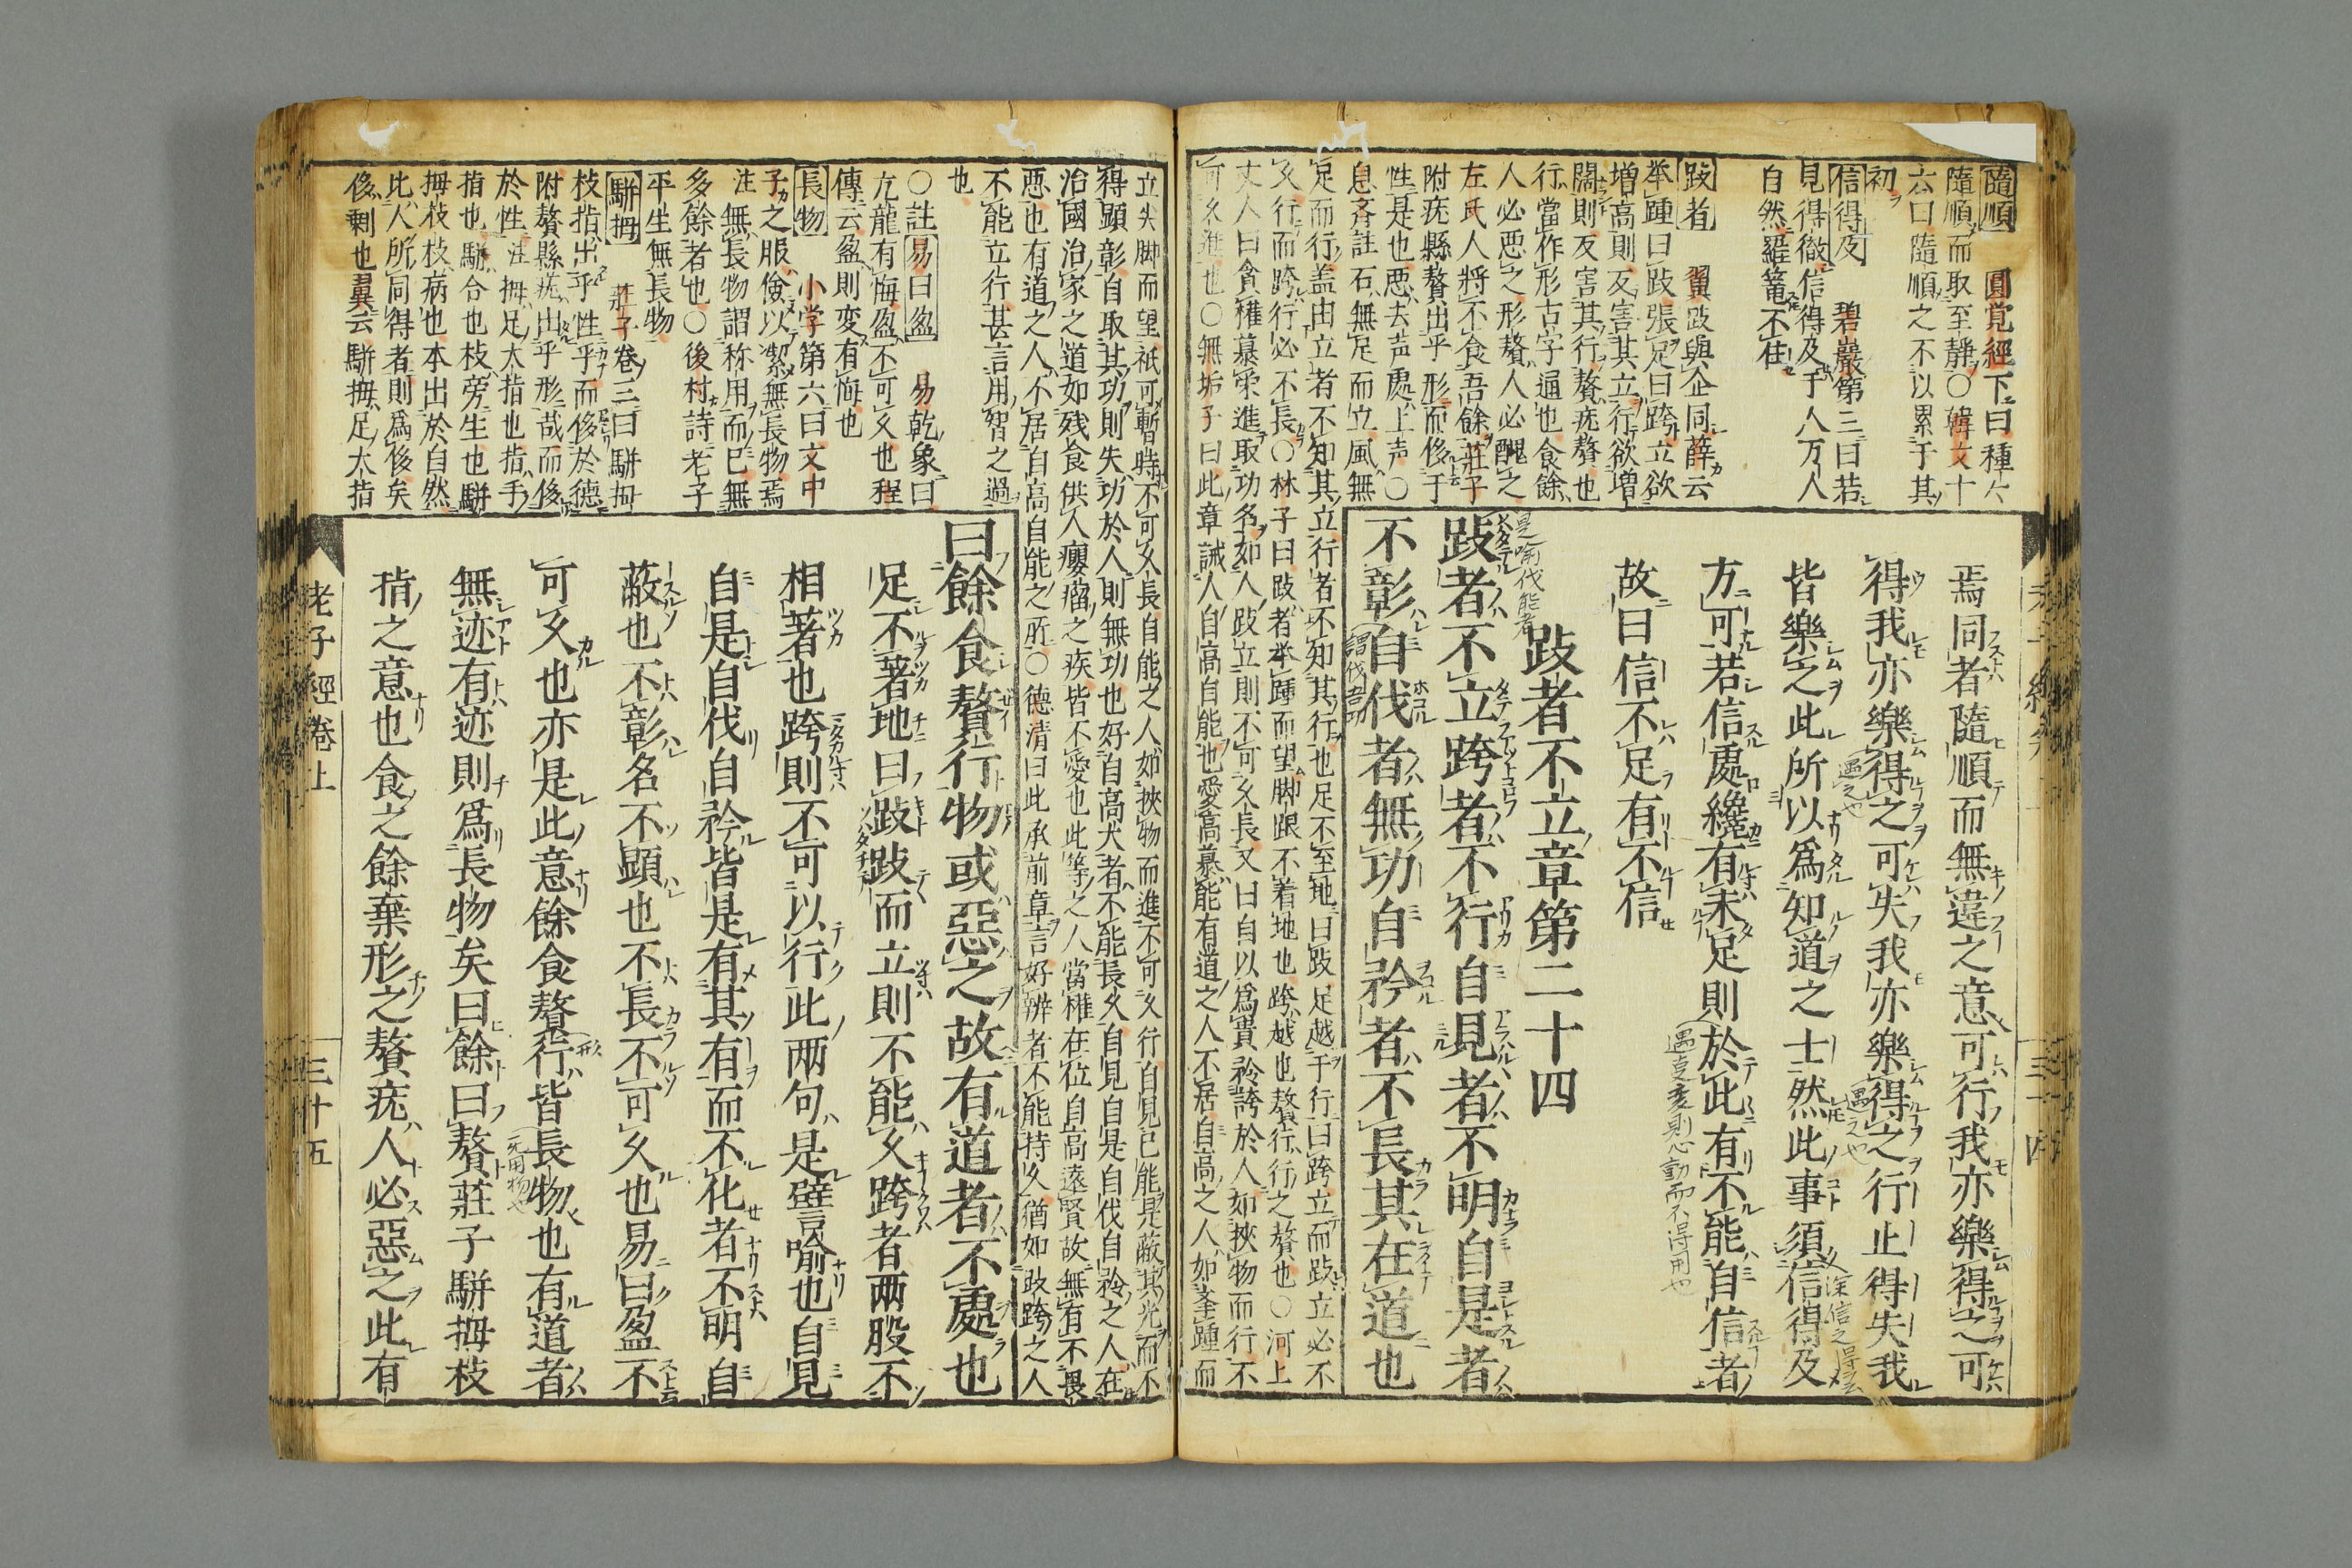 隨順 圓覚經下曰種々
隨順而取至靜○韓文十
六曰隨順之不以累于其
初
信得及 碧巖第三曰若
見得徹信得及千人万人
自然羅篭不住
跂者 翼跂與企同薛云
挙踵曰跂張足曰跨立欲
増高則反害其立行欲増
闊則反害其行贅疣贅也
行當作形古字通也食餘
人必悪之形贅人必醜之
左氏人将不食吾餘莊子
附疣縣贅出乎形而侈于
性是也悪去声處上声○
息斉註石無足而立風無
足而行盖由立者不知其立行者不知其行也足不至地曰跂足越于行曰跨立而跂立必不
久行而跨行必不長○林子曰跂者挙踵而望脚跟不着地也跨越也贅行行之贅也○河上
丈人曰貪権慕栄進取功名如人跂立則不可久長又曰自以爲貴矜誇於人如挾物而行不
可久進也○無垢子曰此章誡人自高自能也愛高慕能有道之人不居自高之人如挙踵而
焉同者隨順而無違之意可行我亦樂得之可
得我亦樂得之可失我亦樂得之行止得失我
皆樂之此所以爲知道之士然此事須信得及
方可若信處纔有未足則於此有不能自信者
故曰信不足有不信
跂者不立章第二十四
跂者不立跨者不行自見者不明自是者
不彰自伐者無功自矜者不長其在道也
立失脚而望祇可暫時不可久長自能之人如挾物而進不可久行自見已能是蔽其光而不
得顕彰自取其功則失功於人則無功也好自高大者不能長久自見自是自伐自矜之人在
治國治家之道如残食供人癭瘤之疾皆不愛也此等之人當権在位自高遠賢故無有不畏
悪也有道之人不居自高自能之所○德清曰此承前章言好辨者不能持久猶如跂跨之人
不能立行甚言用智之過
也
○註易曰盈 易乾象曰
亢龍有悔盈不可久也程
傳云盈則変有悔也
長物 小学第六曰文中
子之服倹以潔無長物焉
注無長物謂称用而已無
多餘者也○後村詩老子
平生無長物
駢拇 莊子巻三曰駢拇
枝指出乎性乎而侈於德
附贅縣疣出乎形哉而侈
於性注拇足大指也指手
指也駢合也枝旁生也駢
拇枝枝病也本出於自然
比人所同得者則爲侈矣
侈剰也翼云駢拇足大指
曰餘食贅行物或惡之故有道者不處也
足不著地曰跂跂而立則不能久跨者両股不
相著也跨則不可以行此両句是譬喻也自見
自是自伐自矜皆是有其有而不化者不明自
蔽也不彰名不顕也不長不可久也易曰盈不
可久也亦是此意餘食贅行皆長物也有道者
無迹有迹則爲長物矣曰餘曰贅莊子駢拇枝
指之意也食之餘棄形之贅疣人必惡之此有
老子經巻上
三十五